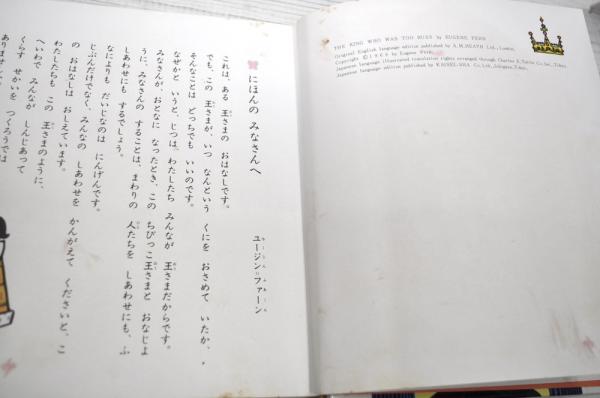 にほんの みなさんへ
ユージン＝ファーン
これは、ある 王さまの おはなしです。
でも、この 王さまが、いつ なんという くにを おさめて いたか、
そんなことは どっちでも いいのです。
なぜかと いうと、じつは、わたしたち みんなが 王さまだからです。
みなさんが、おとなに なったとき、この ちびっこ王さまと おなじよ
うに、みなさんの することは、まわりの 人たちを しあわせにも、ふ
しあわせにも するでしょう。
なによりも だいじなのは にんげんです。
じぶんだけでなく、みんなの しあわせを かんがえて くださいと、こ
の おはなしは おしえています。
わたしたちも この 王さまのように、
へいわで みんなが しんじあって
くらす せかいを つくろうでは
ありませ
THE KING WHO WAS TOO BUSY by EUGENE FERN
Original English language edition published by A.M.HEATH Ltd., London.
Copyright © 1966 by Eugene Fern
Japanese language illustrated translation rights arranged through Charles E. Tuttle Co. Inc., Tokyo.
Japanese language edition published by KAISEI-SHA Co. Ltd., Tokyo.